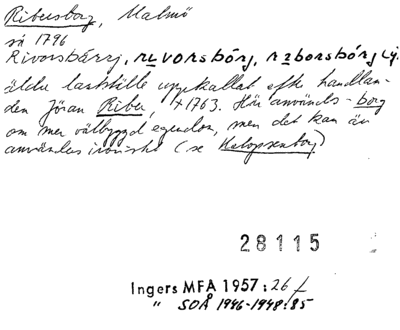 Ribersborg, Malmö
så 1796
Rivorsbårj, rivorsbórj,
äldre lantställe uppkallat efter handlan-
den Jöran Riber, +1763. Här användes -borg
om mer välbyggd egendom, men det kan än
användas ironiskt (se Kalopsenborg)
28115
Ingers MFA 1957:26 f
" SOÅ 1946-1948:85